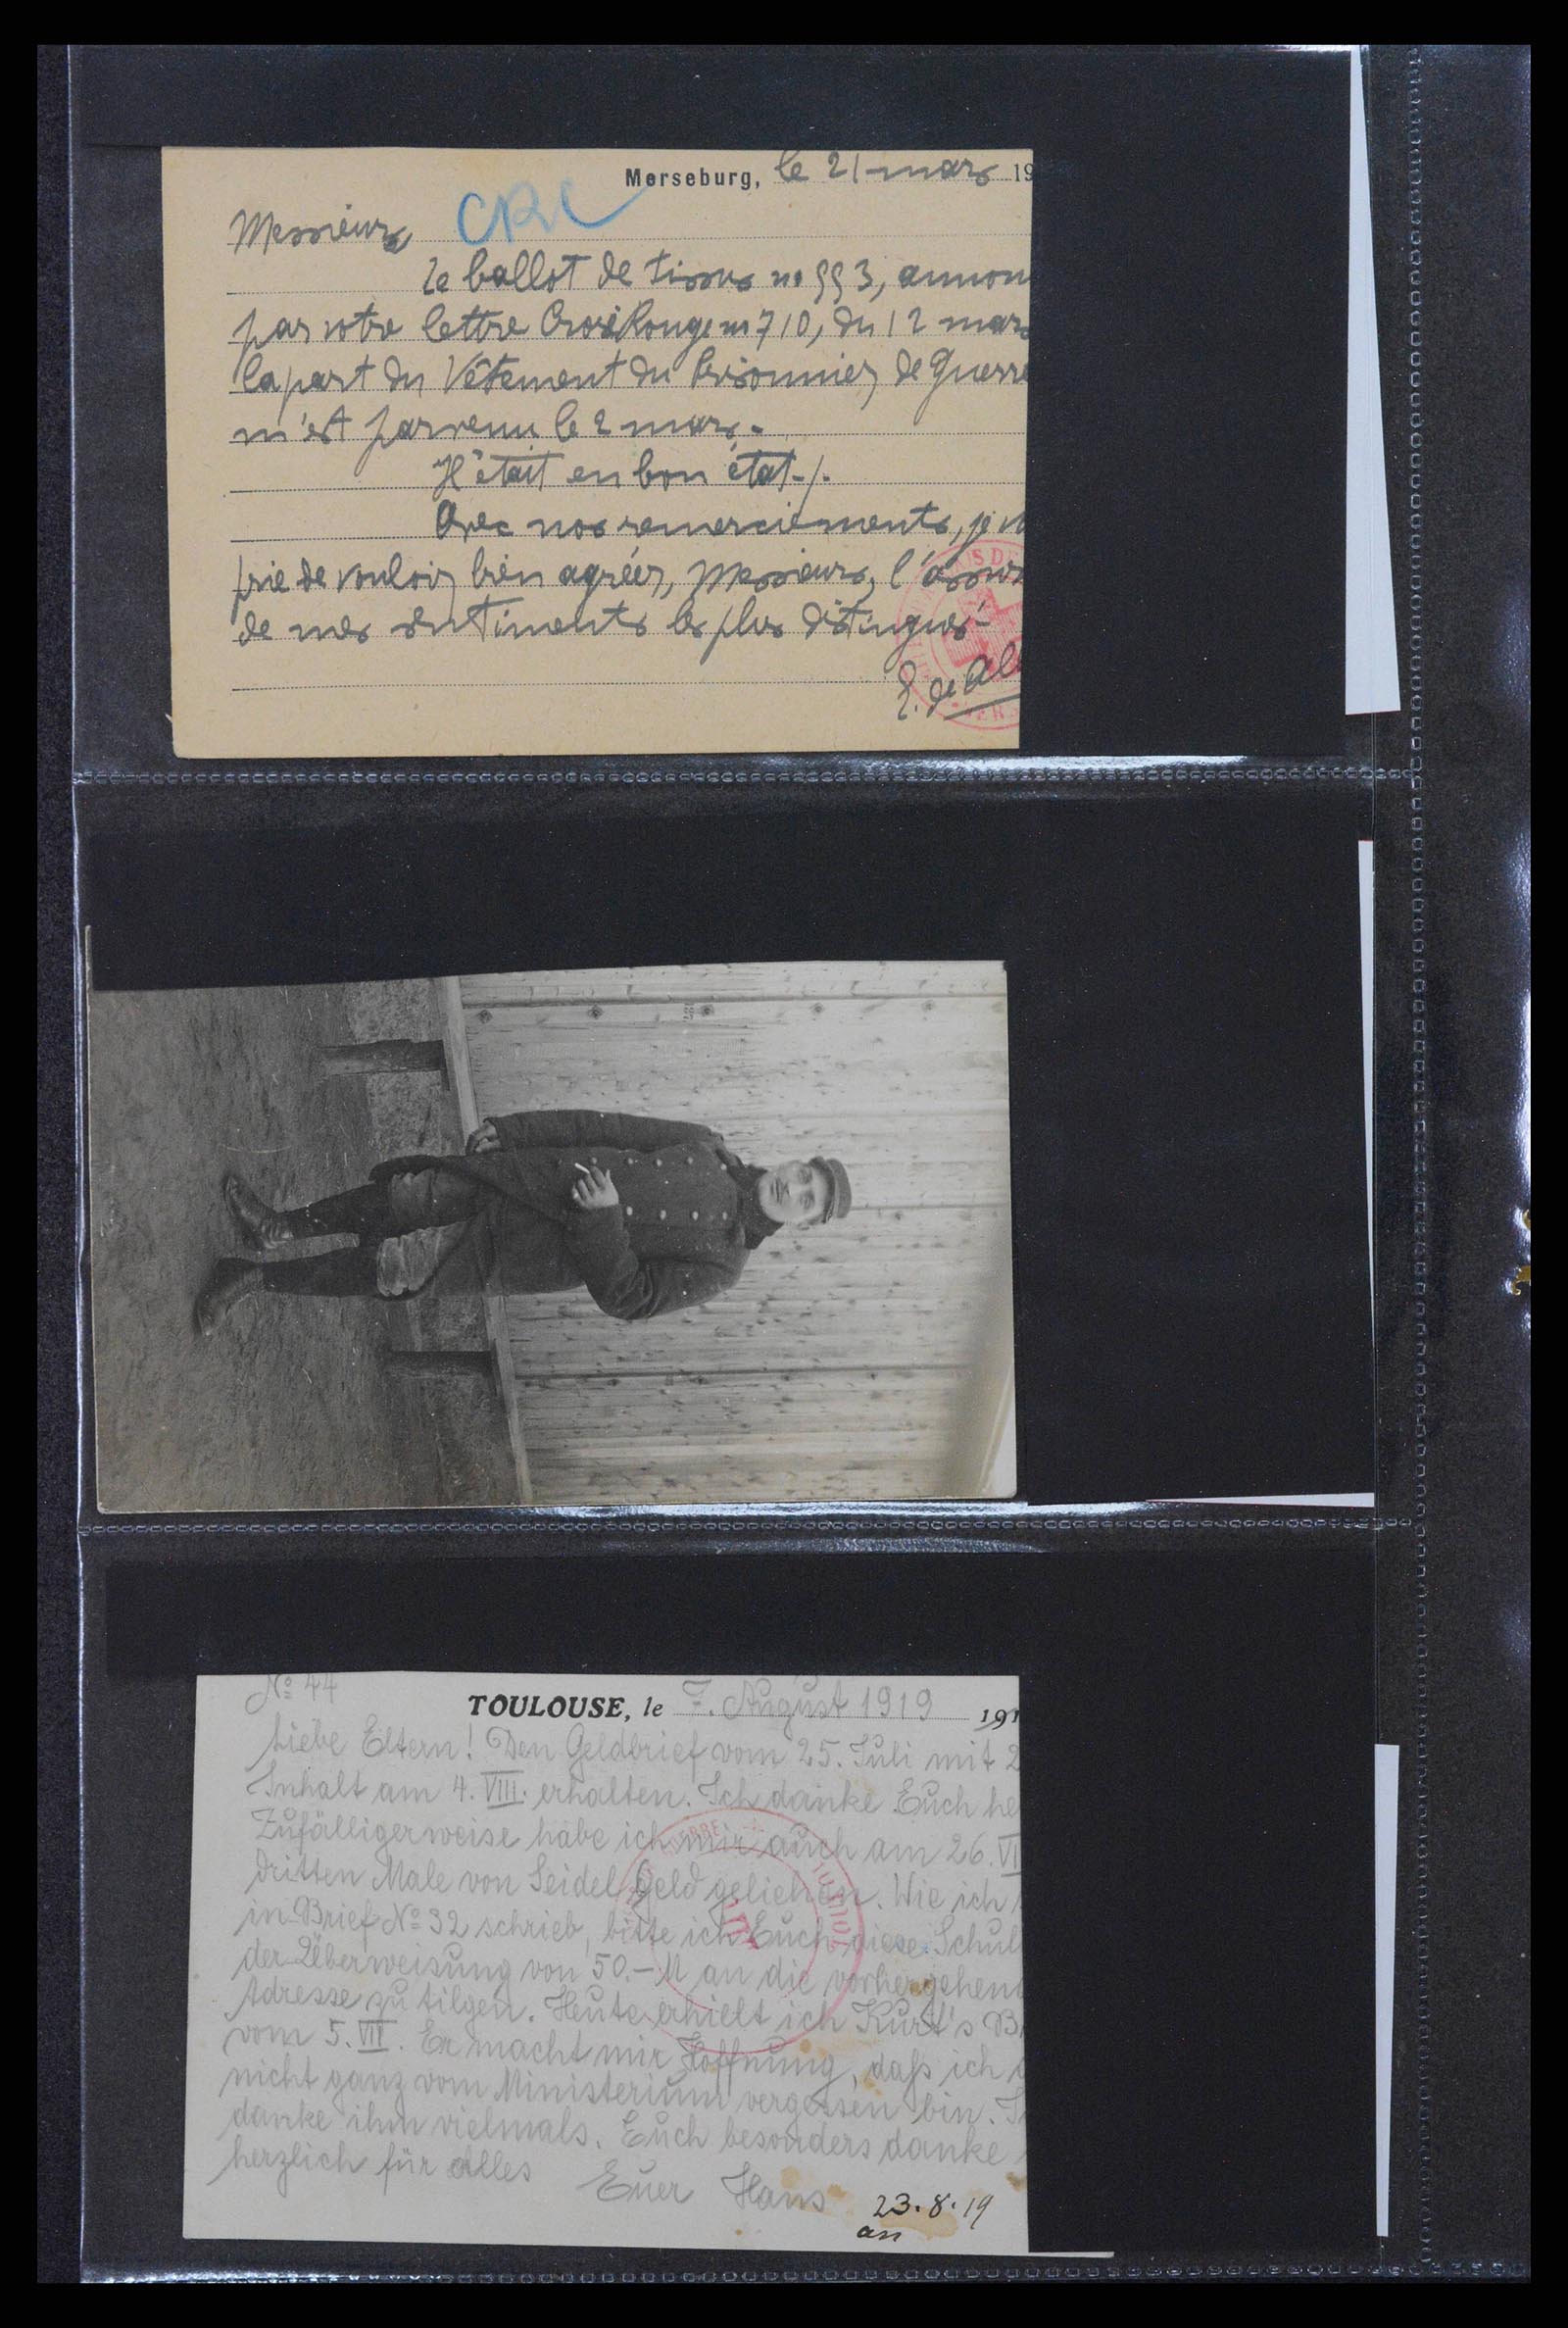 Merseburg, le 21 mars 19
CRC
Messieurs
le ballot de tissus no 993, annon
par votre lettre Croix Rouge no 710, du 12 mars
la part du Vêtement du Prisonnier de Guerre
m'est parvenu le 2 mars.
Il était en bon état./.
Avec nos remerciements, je v
prie de vouloir bien agréer, Messieurs, l'assur
de mes sentiments les plus distingués
de Al
No 44
TOULOUSE, le 7. August 1919 191
Liebe Eltern! Den Geldbrief vom 25. Juli mit 2
Inhalt am 4. VIII. erhalten. Ich danke Euch he
Zufälligerweise habe ich mir auch am 26. VI
dritten Male von Seidel Geld geliehen. Wie ich
in Brief No 32 schrieb, bitte ich Euch diese Schul
der Überweisung von 50.– M an die vorhergehend
Adresse zu tilgen. Heute erhielt ich Kurt's Br
vom 5. VII. Er macht mir Hoffnung, daß ich
nicht ganz vom Ministerium vergessen bin. I
danke ihm vielmals. Euch besonders danke
herzlich für alles Euer Hans
23.8.19
an